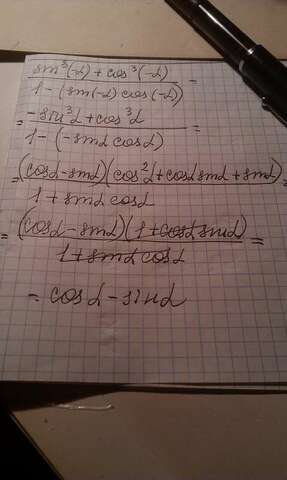 sin³(-α) + cos³(-α) / 1 - (sin(-α) cos(-α)) =
= -sin³α + cos³α / 1 - (-sinα cosα) =
= (cosα - sinα)(cos²α + cosα sinα + sinα) / 1 + sinα cosα =
= (cosα - sinα)(1 + cosα sinα) / 1 + sinα cosα =
= cosα - sinα